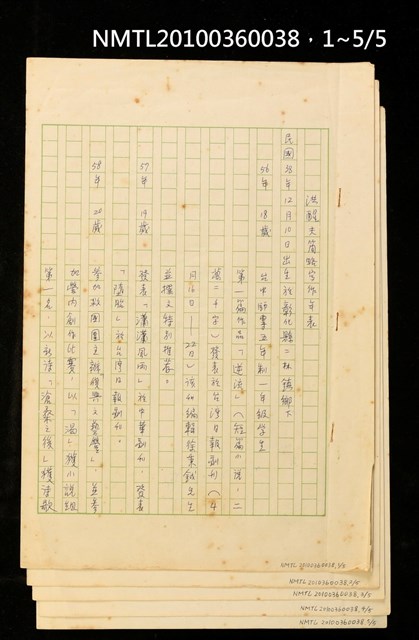 NMTL20100360038，1~5/5
洪醒夫簡略寫作年表
民國38年12月10日出生於彰化縣二林鎮鄉下
56年 18歲 台中師專五年制一年級學生
第一篇作品「逆流」（短篇小說，二
萬二千字）發表於台灣日報副刊（4
月16日——22日）該刊編輯徐秉鉞先生
並撰文特別推荐。
57年 19歲 發表「瀟瀟風雨」於中華副刊 發表
於台灣日報副刊。
58年 20歲 參加救國團主辦復興文藝營，並參
加營內創作比賽，以「逼」獲小說組
第一名，以新詩「滄桑之後」獲詩歌
NMTL20100360038,1/5
NMTL20100360038,2/5
NMTL20100360038,3/5
NMTL20100360038,4/5
NMTL20100360038,5/5